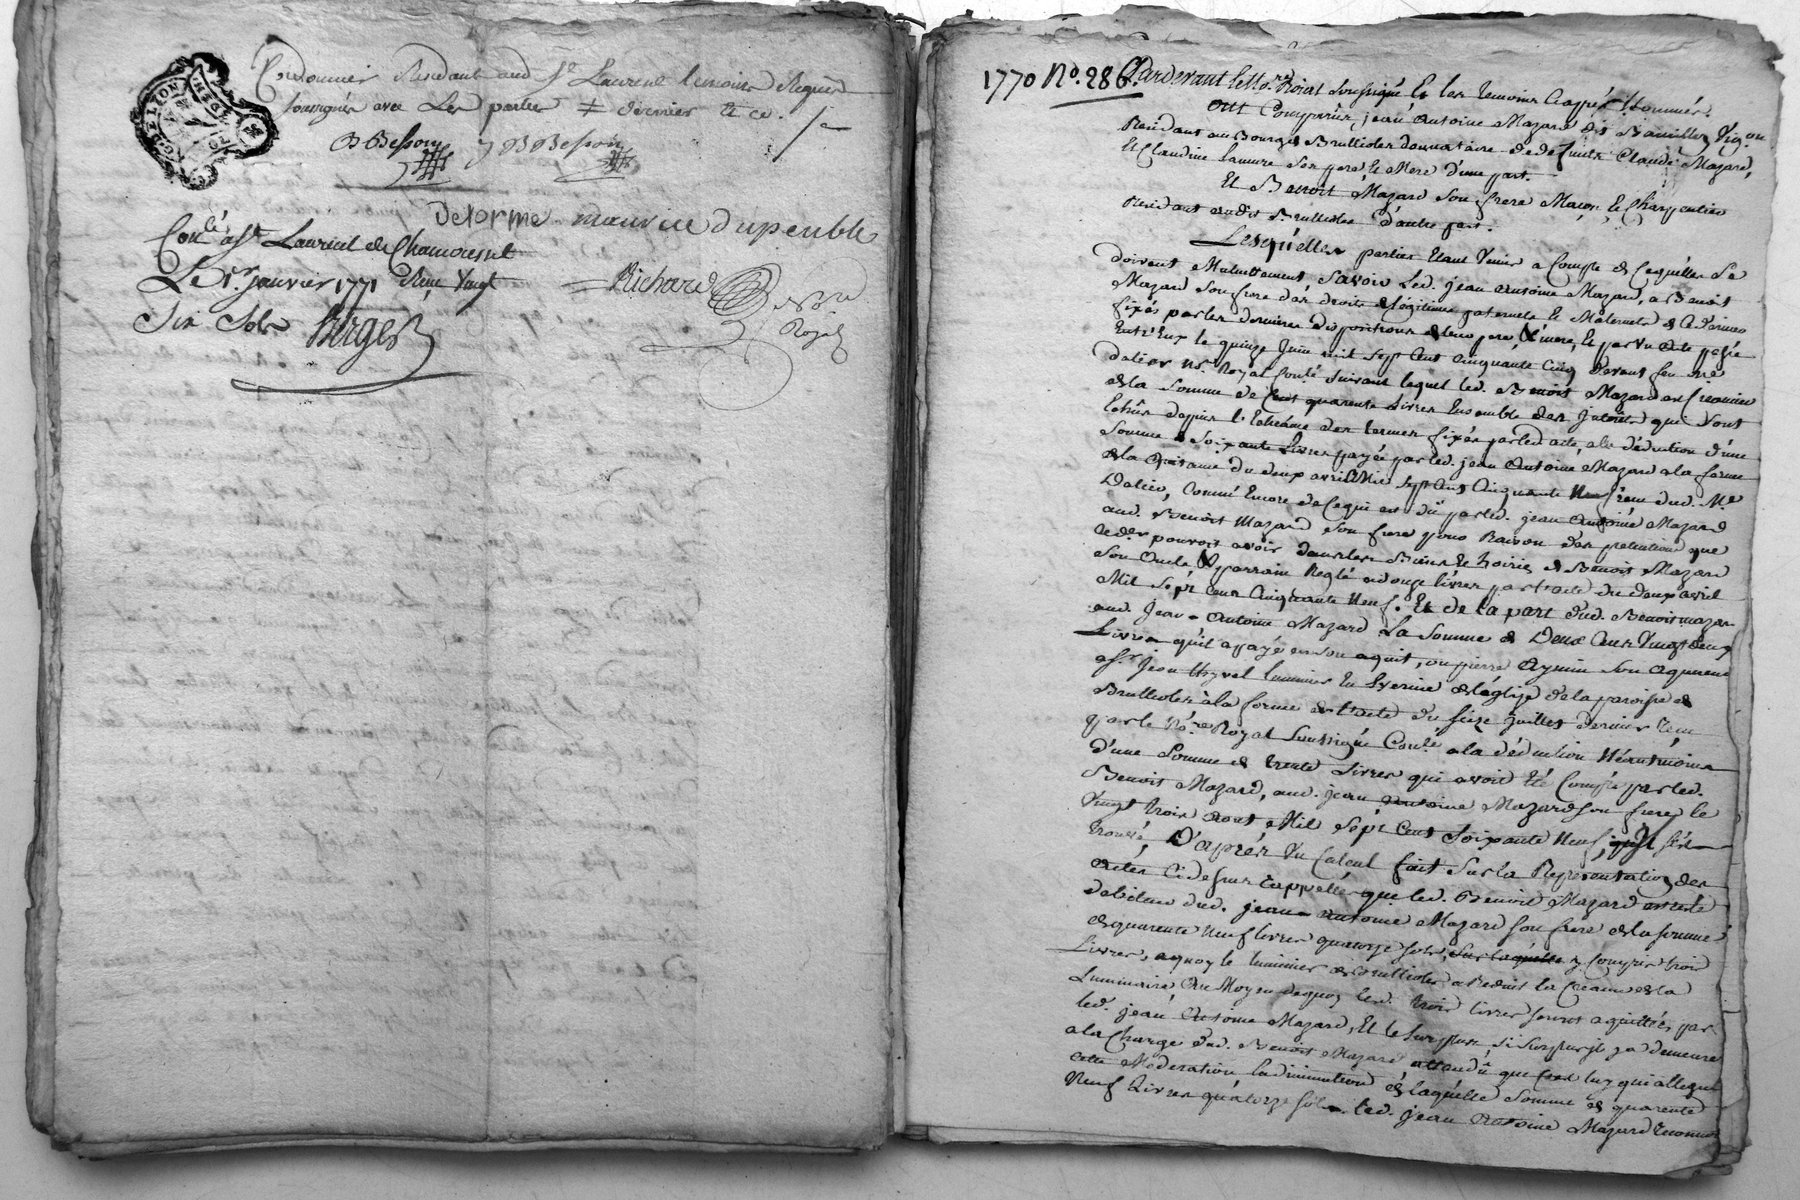 Cordonnier Residant aud Sr. Laurent temoins Requis
soussignés avec les parties ≠ dernier et ce.
B Besson j B Besson
Delorme maurice Dupeuble
Conlé à St Laurent de Chamousset
Le 1er. janvier 1771 Reçu Vingt
Six Sols Berger
Richard
no.re
Royal
GN. DE LYON
1770 No. 286. Pardevant le No.re Roial Soussigné Et les temoins Cyaprés Nommés
ont Comparûs, jean Antoine Mazard dit Vig.on
Residant au Bourg de Brullioles donnataire de deffunts Claude Mazard,
Et Claudine Lamure Ses pere Et Mere d'une part.
Et Benoit Mazard Son frere Maçon Et Charpentier
Residant audit Brullioles D'autre part.
Lesquelles parties Etant Venies a Compte de Cequ'elles Se
doivent Mutuellement Savoir Led. jean Antoine Mazard, a Benoit
Mazard Son frere des droits de légitimes paternels Et Maternels
fixés par les dernieres dispositions de leurs pere & mere, Et par Un acte passé
Entr'Eux le quinze Juin mil Sept Cent Cinquante Cinq devant feu me
dalier no.re Royal Suivant lequel led. Benoit Mazard est Creancier
de la Somme de Cent quarante Livres Ensemble des jnterets qui Sont
Echûs depuis l'Echéance des termes fixés par led. acte, a la déduction d'une
Somme de Soixante Livres payée par led. jean Antoine Mazard a la forme
de la Quitance du deux avril Mil Sept Cent Cinquante Neuf reçu dud. Me
Dalier, Comme Encore de Cequi est dû par led. jean Antoine Mazard
aud. Benoit Mazard Son frere pour Raison des pretentions que
led.er pouvoit avoir dans les Biens Et hoirie de Benoit Mazard
Son Oncle & parrain Reglé a douze livres par traité du deux avril
Mil Sept Cent Cinquante Neuf. Et de la part dud. Benoit mazard
aud. Jean Antoine Mazard La Somme de Deux Cent Vingt deux
Livres qu'il a payé en Son aquit, au pierre Son
a Sr. jean luminier En Exercice de l'église de la paroisse de
Brullioles à la forme de traité du Seize juillet dernier reçu
par le No.re Royal Soussigné Conlé a la déduction Néantmoins
d'une Somme de trente Livres qui avoit Eté Compté par led.
Benoit Mazard, aud. jean Antoine Mazard Son frere le
Vingt trois aout Mil Sept Cent Soixante Neuf, S'est
trouvé, D'aprés Un Calcul fait Sur la Representation des
actes Cidessus rappellés que led. Benoit Mazard
débiteur dud. jean Antoine Mazard Son frere de la Somme
de quarente Neuf livres quatorze Sols, y Compris trois
Livres, a quoy le luminier de Brullioles a Reduit la Creance de la
Luminaire, Au Moyen dequoy les. trois livres Seront aquittées par
led. jean Antoine Mazard, Et le Surplus, Si Surplus y a demeure
a la Charge dud. Benoit Mazard attendû que C'est luy qui allegue
Cette Moderation de laquelle Somme de quarente
Neuf Livres quatorze Sols led. jean Antoine Mazard